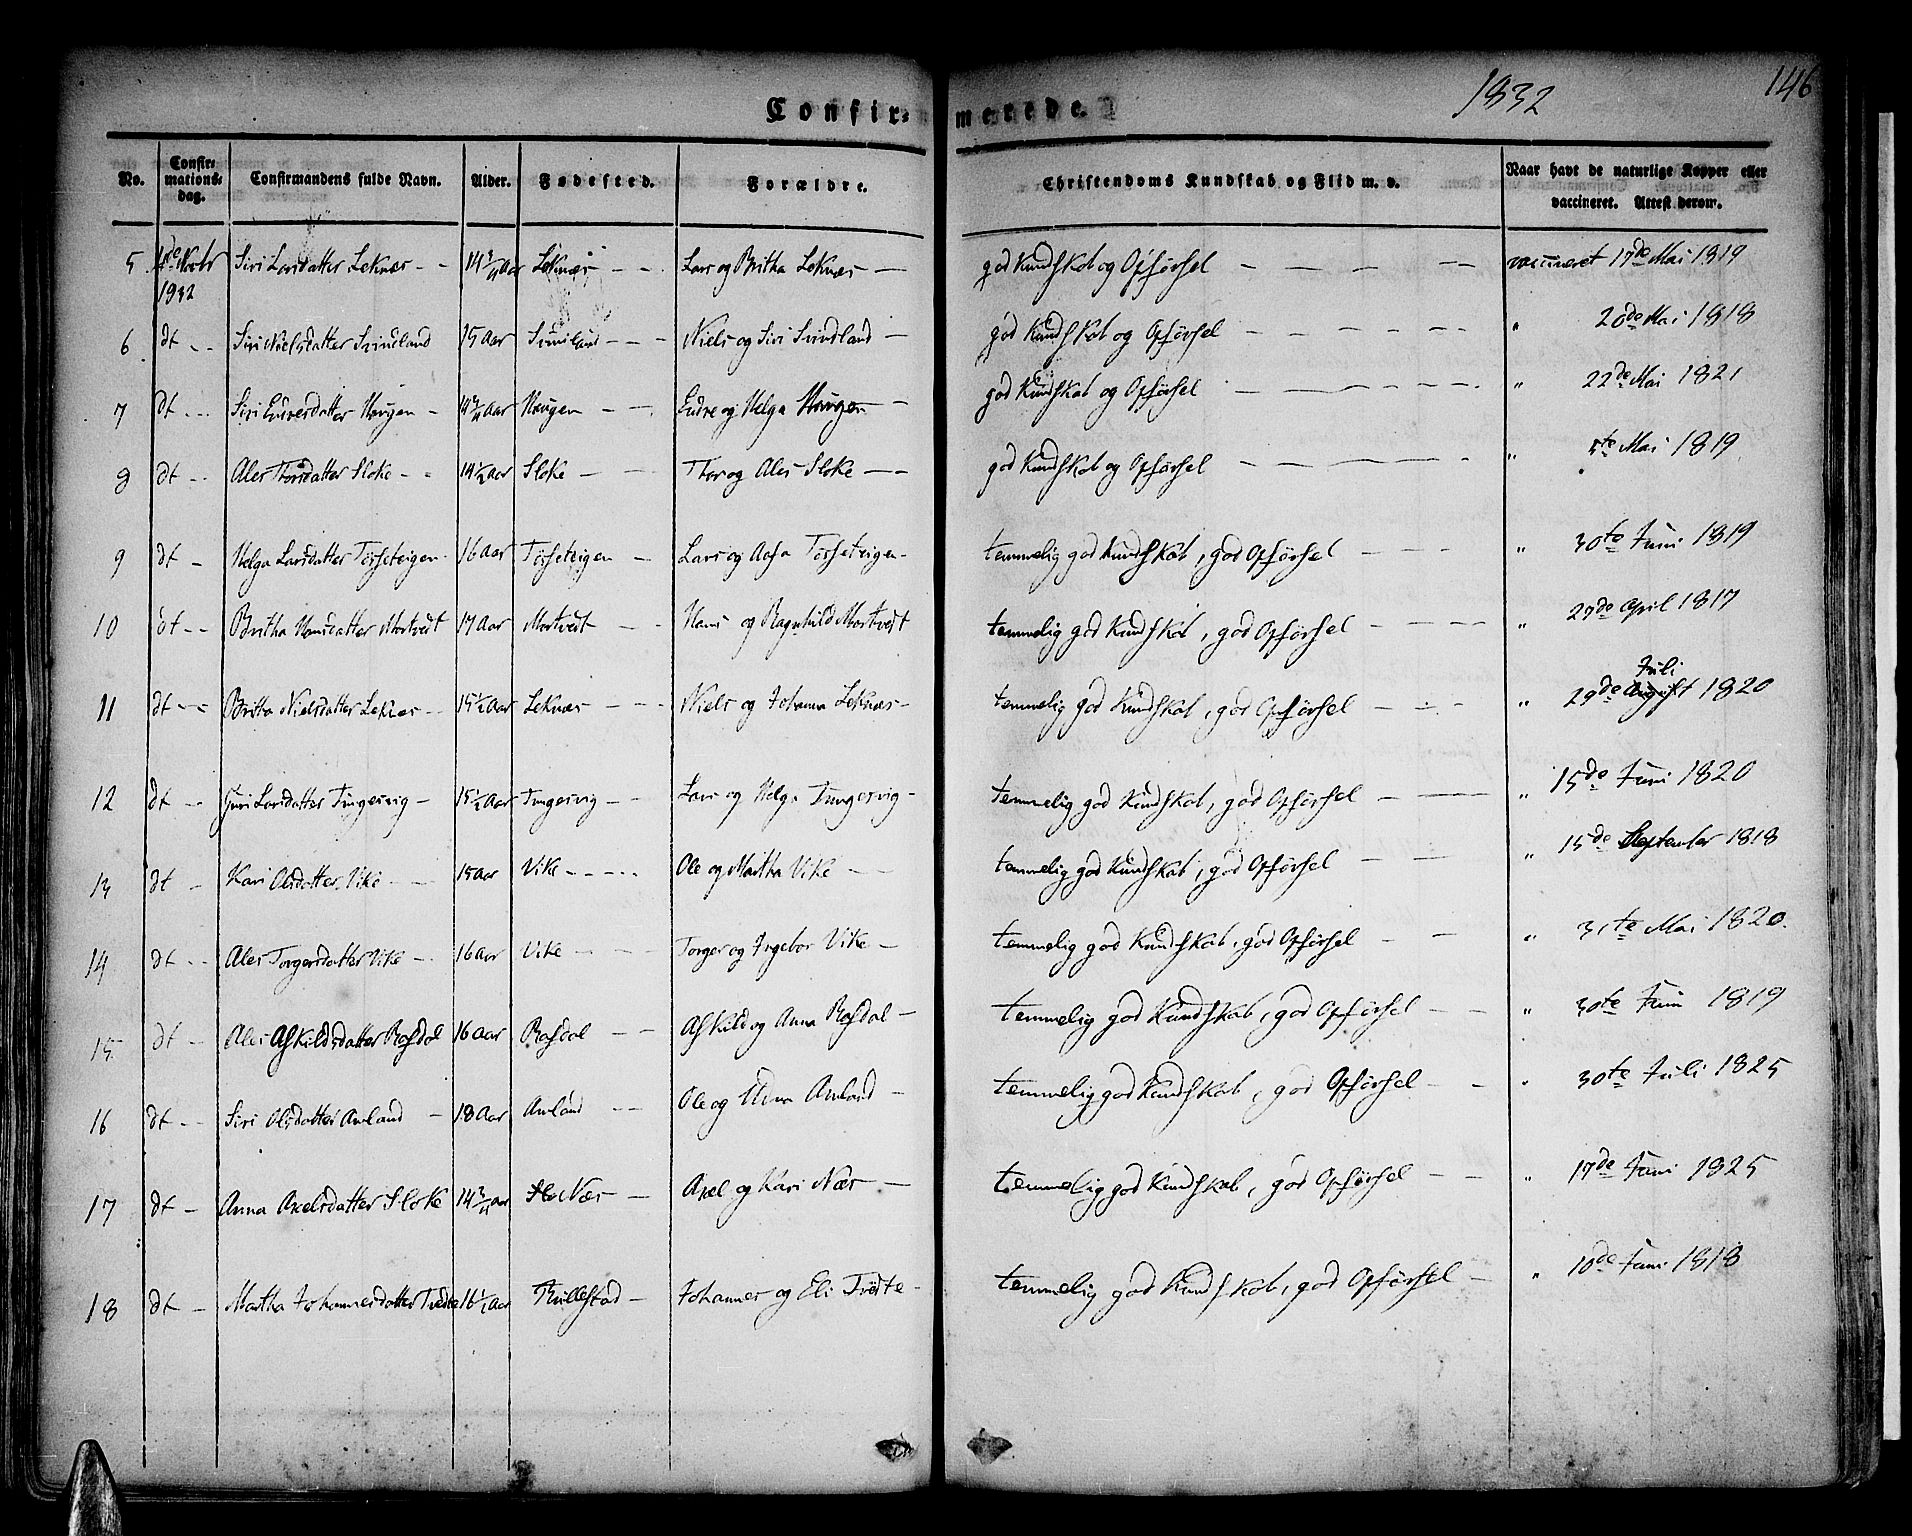 1832
146
Confirmerede.
No. Confirmationsdag. Confirmandens fulde Navn. Alder. Fødested. Forældre. Christendoms Kundskab og Flid m. v. Naar havt de naturlige Kopper eller vaccineret. Attest derom.
5 4de Novbr 1832 Siri Larsdatter Leknæs - - 14 3/4 Aar Leknæs - - - Lars og Britha Leknæs - god Kundskab og Opførsel - - - - - vaccineret 17de Mai 1819
6 dt - - Siri Nielsdatter Svindland 15 Aar Svindland - - - Niels og Siri Svindland - god Kundskab og Opførsel - - - - - " 20de Mai 1818
7 dt - - Siri Endresdatter Haugen - 14 3/4 Aar Haugen - - Endre og Helga Haugen - god Kundskab og Opførsel - - - - - " 22de Mai 1821
8 dt - - Ales Thorsdatter Sloke - - 14 1/2 Aar Sloke - - - Thor og Ales Sloke - - god Kundskab og Opførsel - - - - - " 5te Mai 1819
9 dt - Helga Larsdatter Tosseteigen 16 Aar Tosseteigen - Lars og Aasa Tosseteigen - temmelig god Kundskab, god Opførsel - - - " 30te Juni 1819
10 dt - - Britha Hansdatter Mortvedt 17 Aar Mortvedt - - Hans og Ragnhild Mortvedt temmelig god Kundskab, god Opførsel - - - - " 27de April 1817
11 dt - - Britha Nielsdatter Leknæs - 15 1/2 Aar Leknæs - - - Niels og Johanna Leknæs - temmelig god Kundskab, god Opførsel - - - " 29de August Juli 1820
12 dt - - Guri Larsdatter Tungesvig - 15 1/2 Aar Tungesvig - - Lars og Helga Tungesvig - temmelig god Kundskab, god Opførsel - - - - " 15de Juni 1820
13 dt - Kari Olsdatter Vike - - 15 Aar Vike - - - - - Ole og Martha Vike - - temmelig god Kundskab, god Opførsel - - " 15de September 1818
14 dt - - Ales Torgersdatter Vike - 16 Aar Vike - - - Torger og Ingebor Vike - temmelig god Kundskab, god Opførsel - - " 31te Mai 1820.
15 dt - Ales Askildsdatter Rosdal 16 Aar Rosdal - - Askild og Anna Rosdal - temmelig god Kundskab, god Opførsel - - " 30te Juni 1819
16 dt - - Siri Olsdatter Amland - 18 Aar Amland - - Ole og Anna Amland - temmelig god Kundskab, god Opførsel - - " 30te Juli 1825
17 dt - Anna Axelsdatter Sloke 14 3/4 Aar Nær - Axel og Kari Nær - temmelig god Kundskab, god Opførsel - - " 17de Juni 1825
18 dt - Martha Johannesdatter Tvedte 16 1/2 Aar Rullestad - Johannes og Eli Tvedte - temmelig god Kundskab, god Opførsel - " 10de Juni 1818